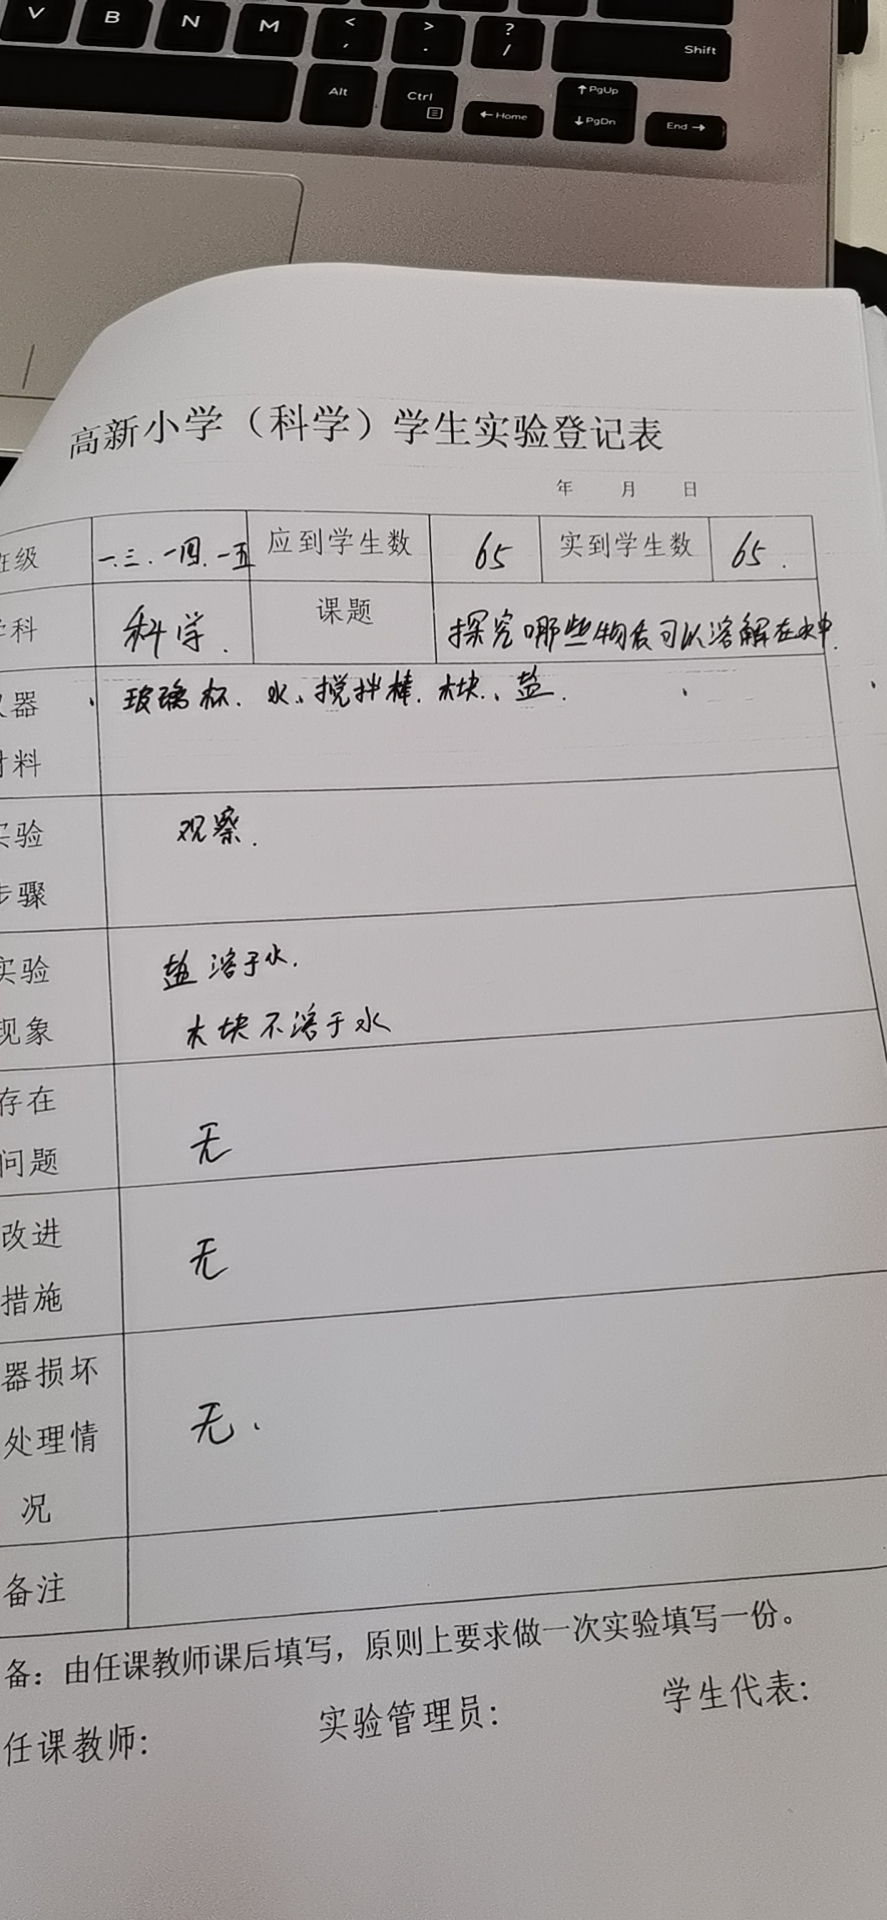 V B N M < , > . ? / Shift
Alt Ctrl ←Home ↑PgUp ↓PgDn End→
高新小学（科学）学生实验登记表
年 月 日
班级 一.三.一四.一五 应到学生数 65 实到学生数 65.
学科 科学. 课题 探究哪些物质可以溶解在水中.
仪器 玻璃杯.水、搅拌棒.木块、盐.
材料
实验 观察.
步骤
实验 盐溶于水.
现象 木块不溶于水
存在
问题 无
改进
措施 无
器损坏
处理情 无.
况
备注
备：由任课教师课后填写，原则上要求做一次实验填写一份。
任课教师: 实验管理员: 学生代表: